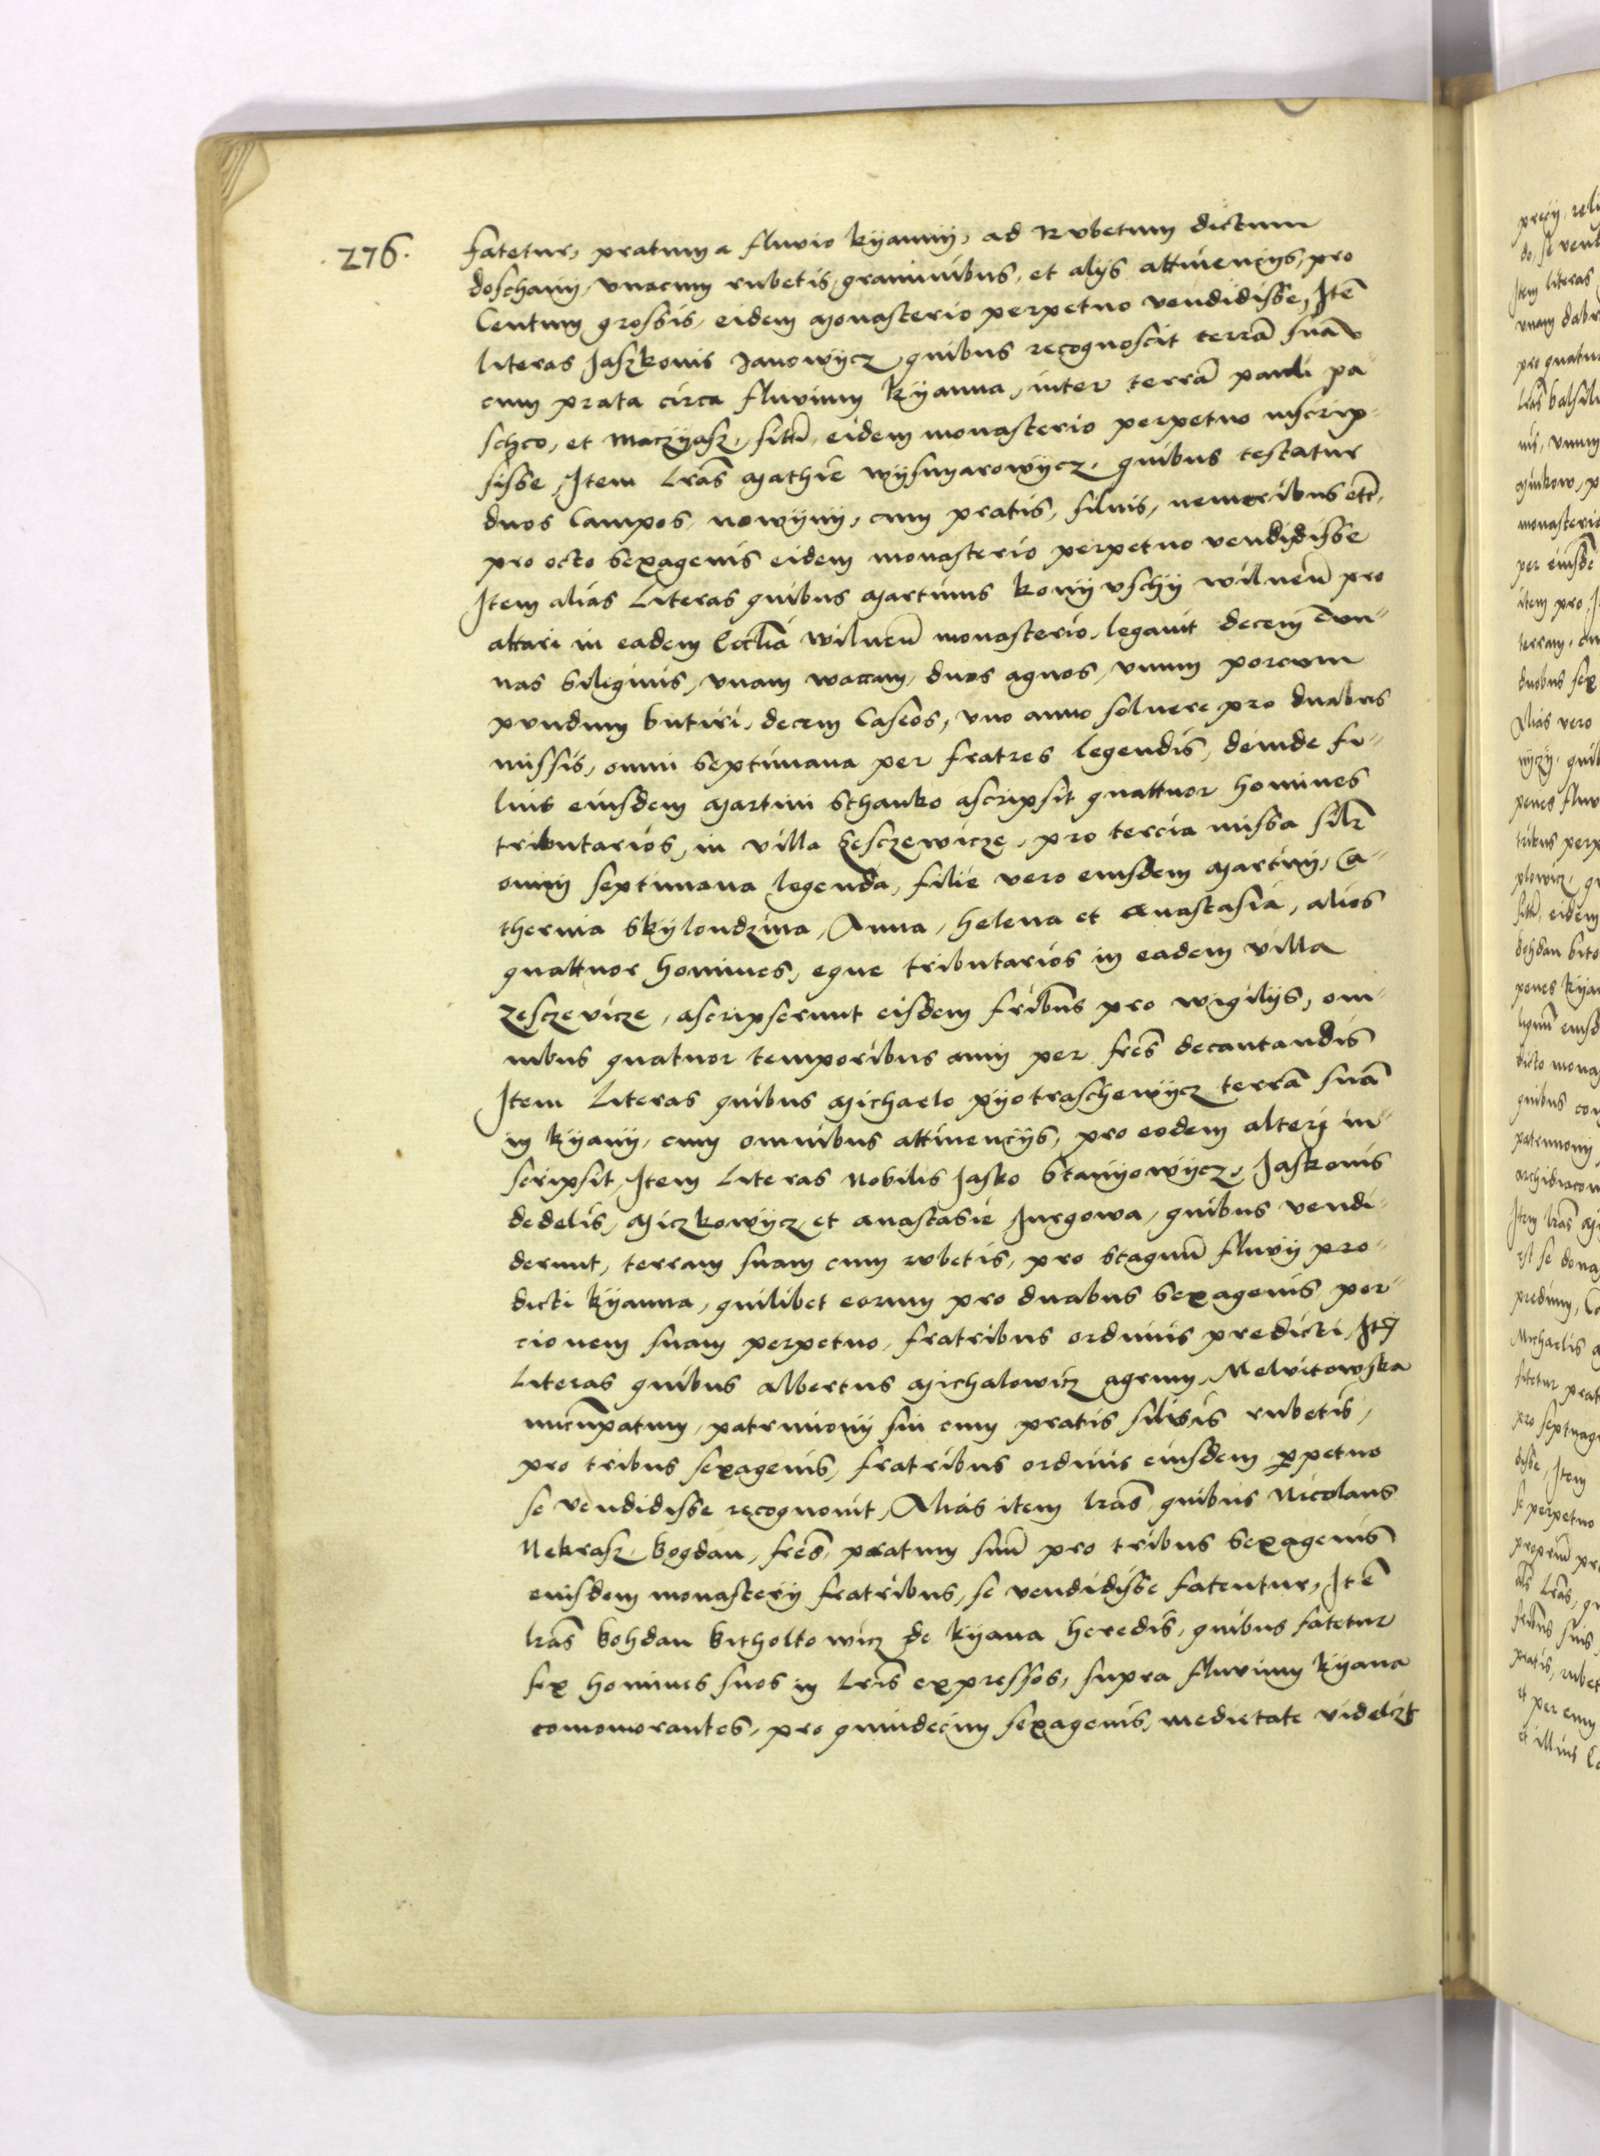 .276.
fatetur, pratum a fluvio kyanny, ad Rubetum dictum
doschany, vnacum rubetis, graminibus, et alys attinencys, pro
Centum grossis, eidem Monasterio perpetuo vendidisse, Itē
literas Jaszkonis Janowycz, quibus recognoscit terrā suā
cum prata circa fluvium kyanna, inter terrā pauli pa¨
schco, et Maczyasz, sitū, eidem monasterio perpetuo inscrip¨
sisse, Item Lrās Mathie wysnyarowycz, quibus testatur
duos Campos, nowyny, cum pratis, siluis, nemoribus etc̄.
pro octo sexagenis eidem monasterio perpetuo vendidisse
Item alias Literas quibus Martinus konyvschy wilnēn̄ pro
altari in eadem Eccl̄ia wilnēn̄ monasterio, legauit decem Tun¨
nas Siliginis, vnam waccam, duos agnos, vnum porcum
pundum butiri, decem Caseos, vno anno soluere pro duabus
missis, omni Septimana per fratres legendis, deinde fi¨
lius eiusdem Martini Schanko ascripsit quattuor homines
tributarios, in villa Zesczewicze, pro tercia missa sil̄r
omni septimana legenda, filie vero eiusdem Martiny, Ca¨
therina Skylondzina, Anna, helena et Anastasia, alios
quattuor homines, eque tributarios in eadem villa
Zesczevicze, ascripserunt eisdem fr̄ibus pro wigilys, om¨
nibus quatuor temporibus anny per frēs decantandis
Item Literas quibus Michaelo pyotraschewycz terrā suā
in kyany, cum omnibus attinencys, pro eodem altery in¨
scripsit, Item Literas Nobilis Jasko Stanyowycz, Jaskonis
dedelis, Miczkowycz, et anastasie Jurgowa, quibus vendi¨
derunt, terram suam cum rubetis, pro stagnū fluvy pre¨
dicti kyanna, quilibet eorum pro duabus Sexagenis, por¨
cionem suam perpetuo, fratribus ordinis predicti, Itē
Literas quibus albertus Michalowicz agrum, Melvitowska
nuncupatum, patrimony sui cum pratis siluis rubetis,
pro tribus sexagenis, fratribus ordinis eiusdem p̱petuo
se vendidisse recognouit, Alias item lrās, quibus Nicolaus
Nekrasz, bogdan, frēs, pratum suū pro tribus Sexagenis
eiusdem monastery fratribus, se vendidisse fatentur, Itē
lrās bohdan bitholtowicz de kyana heredis, quibus fatetur
sex homines suos in Lris expressos, supra fluvium kyana
comomorantes, pro quindecim sexagenis, medietate videlzt